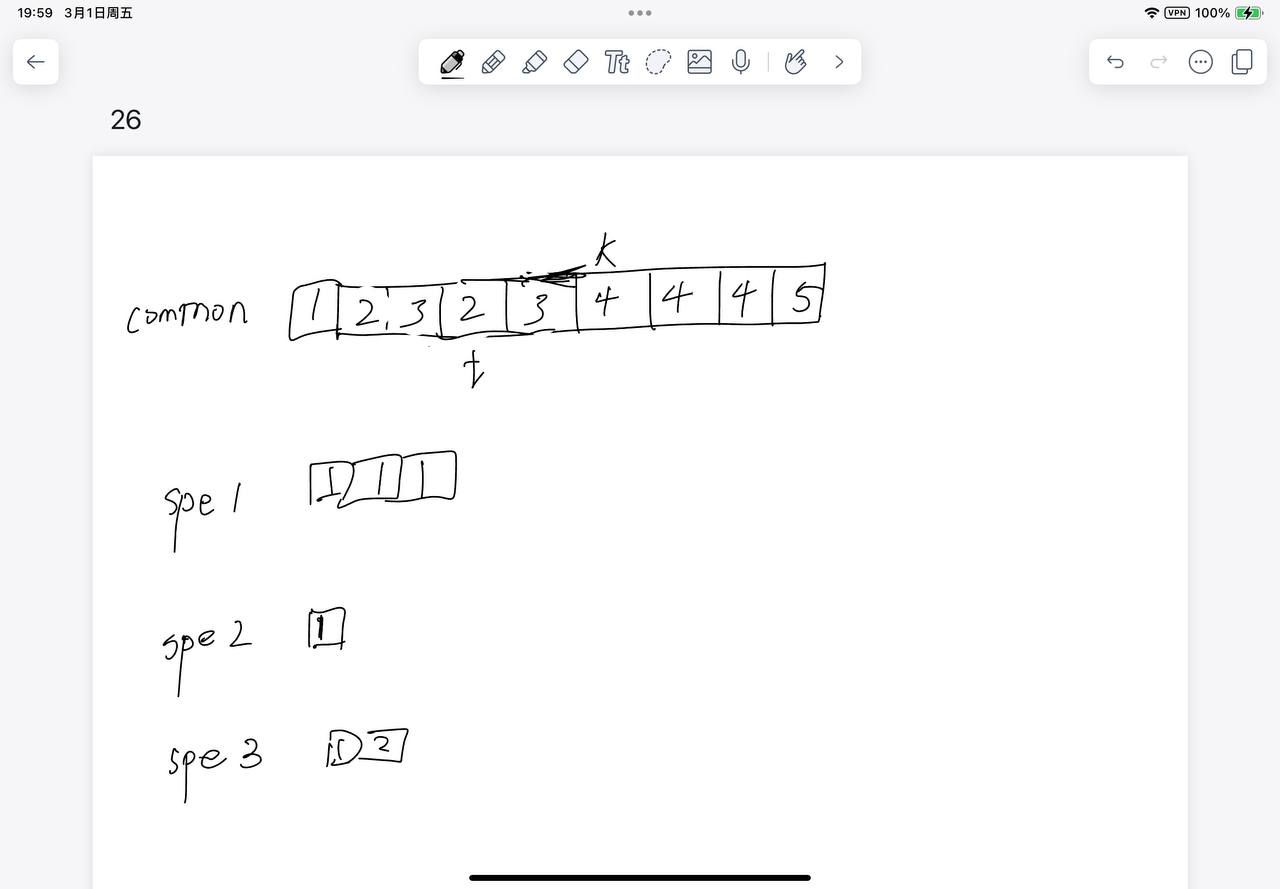 19:59 3月1日周五
VPN 100%
Tt
26
k
common 1 2,3 2 3 4 4 4 5
t
spe 1 1 1 1
spe 2 1
spe 3 1 2